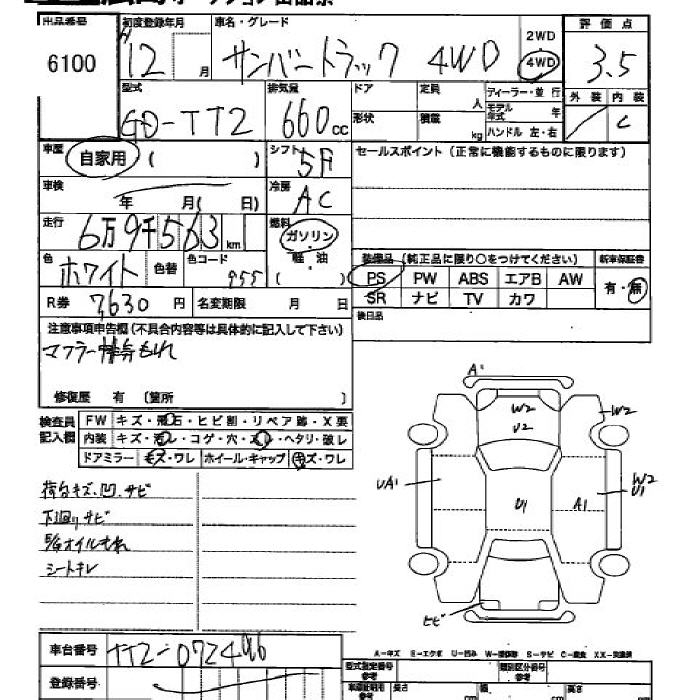 出品番号 初度登録年月 車名・グレード 2WD 評価点
6100 H 12 月 サンバートラック 4WD 4WD 3.5
型式 排気量 ドア 定員 人 ディーラー・並行 外装 内装
GD-TT2 660 cc 形状 積載 kg モデル年式 年 ハンドル 左・右 C
車歴 自家用 ( ) シフト 5F セールスポイント (正常に機能するものに限ります)
車検 年 月( 日) 冷房 AC
走行 6万9千563 km 燃料 ガソリン
色 ホワイト 色替 色コード 955 軽・油 ( ) 装備品 (純正品に限り○をつけてください) 新車保証書
PS PW ABS エアB AW 有・無
R券 7,630 円 名変期限 月 日 SR ナビ TV カワ
注意事項申告欄(不具合内容等は具体的に記入して下さい) 後日品
マフラー排気もれ
修復歴 有 〔箇所 〕
検査員記入欄 FW キズ・飛石・ヒビ割・リペア跡・X要
内装 キズ・汚レ・コゲ・穴・スレ・ヘタリ・破レ
ドアミラー キズ・ワレ ホイール・キャップ キズ・ワレ
A1
W2
U2
W2
UA1
U1
A1
W2
U1
ヒビ
荷台キズ、凹、サビ
下廻りサビ
E/Gオイルもれ
シートキレ
A-キズ E-エクボ U-凹み S-サビ
車台番号 TT2-072496
型式指定番号 参考 類別区分番号 参考
登録番号 長さ cm 幅 cm 高さ cm